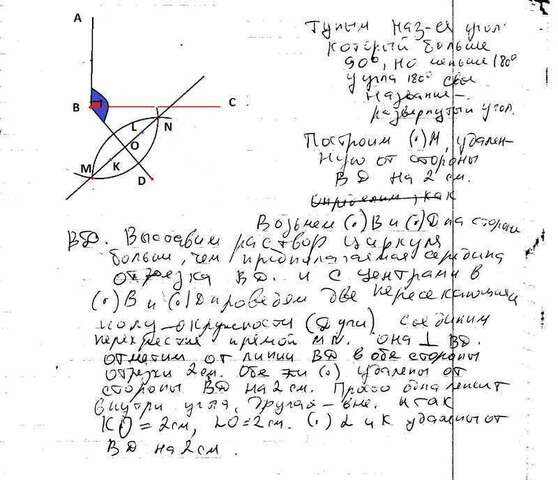 A
B
C
L
N
O
M
K
D
Тупым наз-ся угол
который больше
90°, но меньше 180°
У угла 180° свое
название –
развернутый угол.
Построим (.) M, удален-
ную от стороны
BD на 2 см.
Возьмем (.) B и (.) D на стороне
BD. Выставим раствор циркуля
больше, чем предполагаемая середина
отрезка BD. и с центрами в
(.) B и (.) D проведём две пересекающиеся
полу-окружности (Дуги) соединим
перекрестия прямой MN. она ⊥ BD.
отметим от линии BD в обе стороны
отрезки 2 см. Обе эти (.) удалены от
стороны BD на 2 см. Просто одна лежит
внутри угла, другая – вне. итак
KO = 2 см, LO = 2 см. (.) L и K удалены от
BD на 2 см.